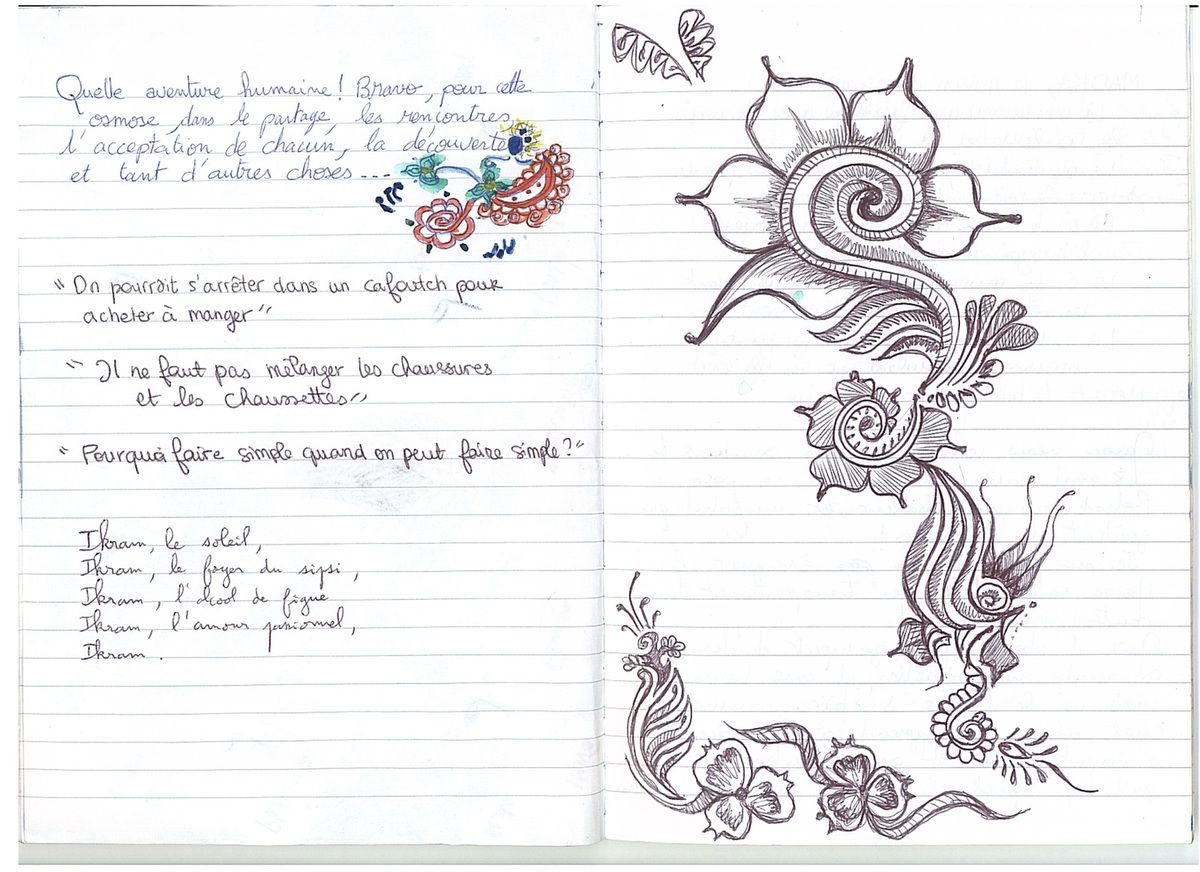 Quelle aventure humaine! Bravo, pour cette
osmose dans le partage, les rencontres,
l'acceptation de chacun, la découverte
et tant d'autres choses ...
"On pourrait s'arrêter dans un cafoutch pour
acheter à manger"
"Il ne faut pas mélanger les chaussures
et les chaussettes"
"Pourquoi faire simple quand on peut faire simple?"
Ikram, le soleil,
Ikram, le foyer du sipsi,
Ikram, l'alcool de figue
Ikram, l'amour passionnel,
Ikram.